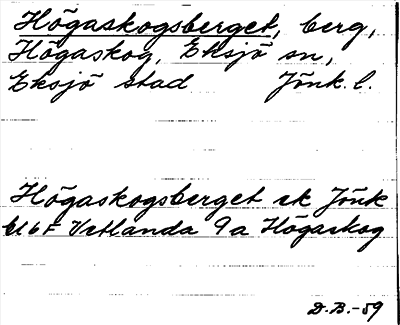 Högaskogsberget, berg,
Högaskog, Eksjö sn,
Eksjö stad Jönk. l.
Högaskogsberget ek Jönk
bl 6 F Vetlanda 9a Högaskog
D.B.-59